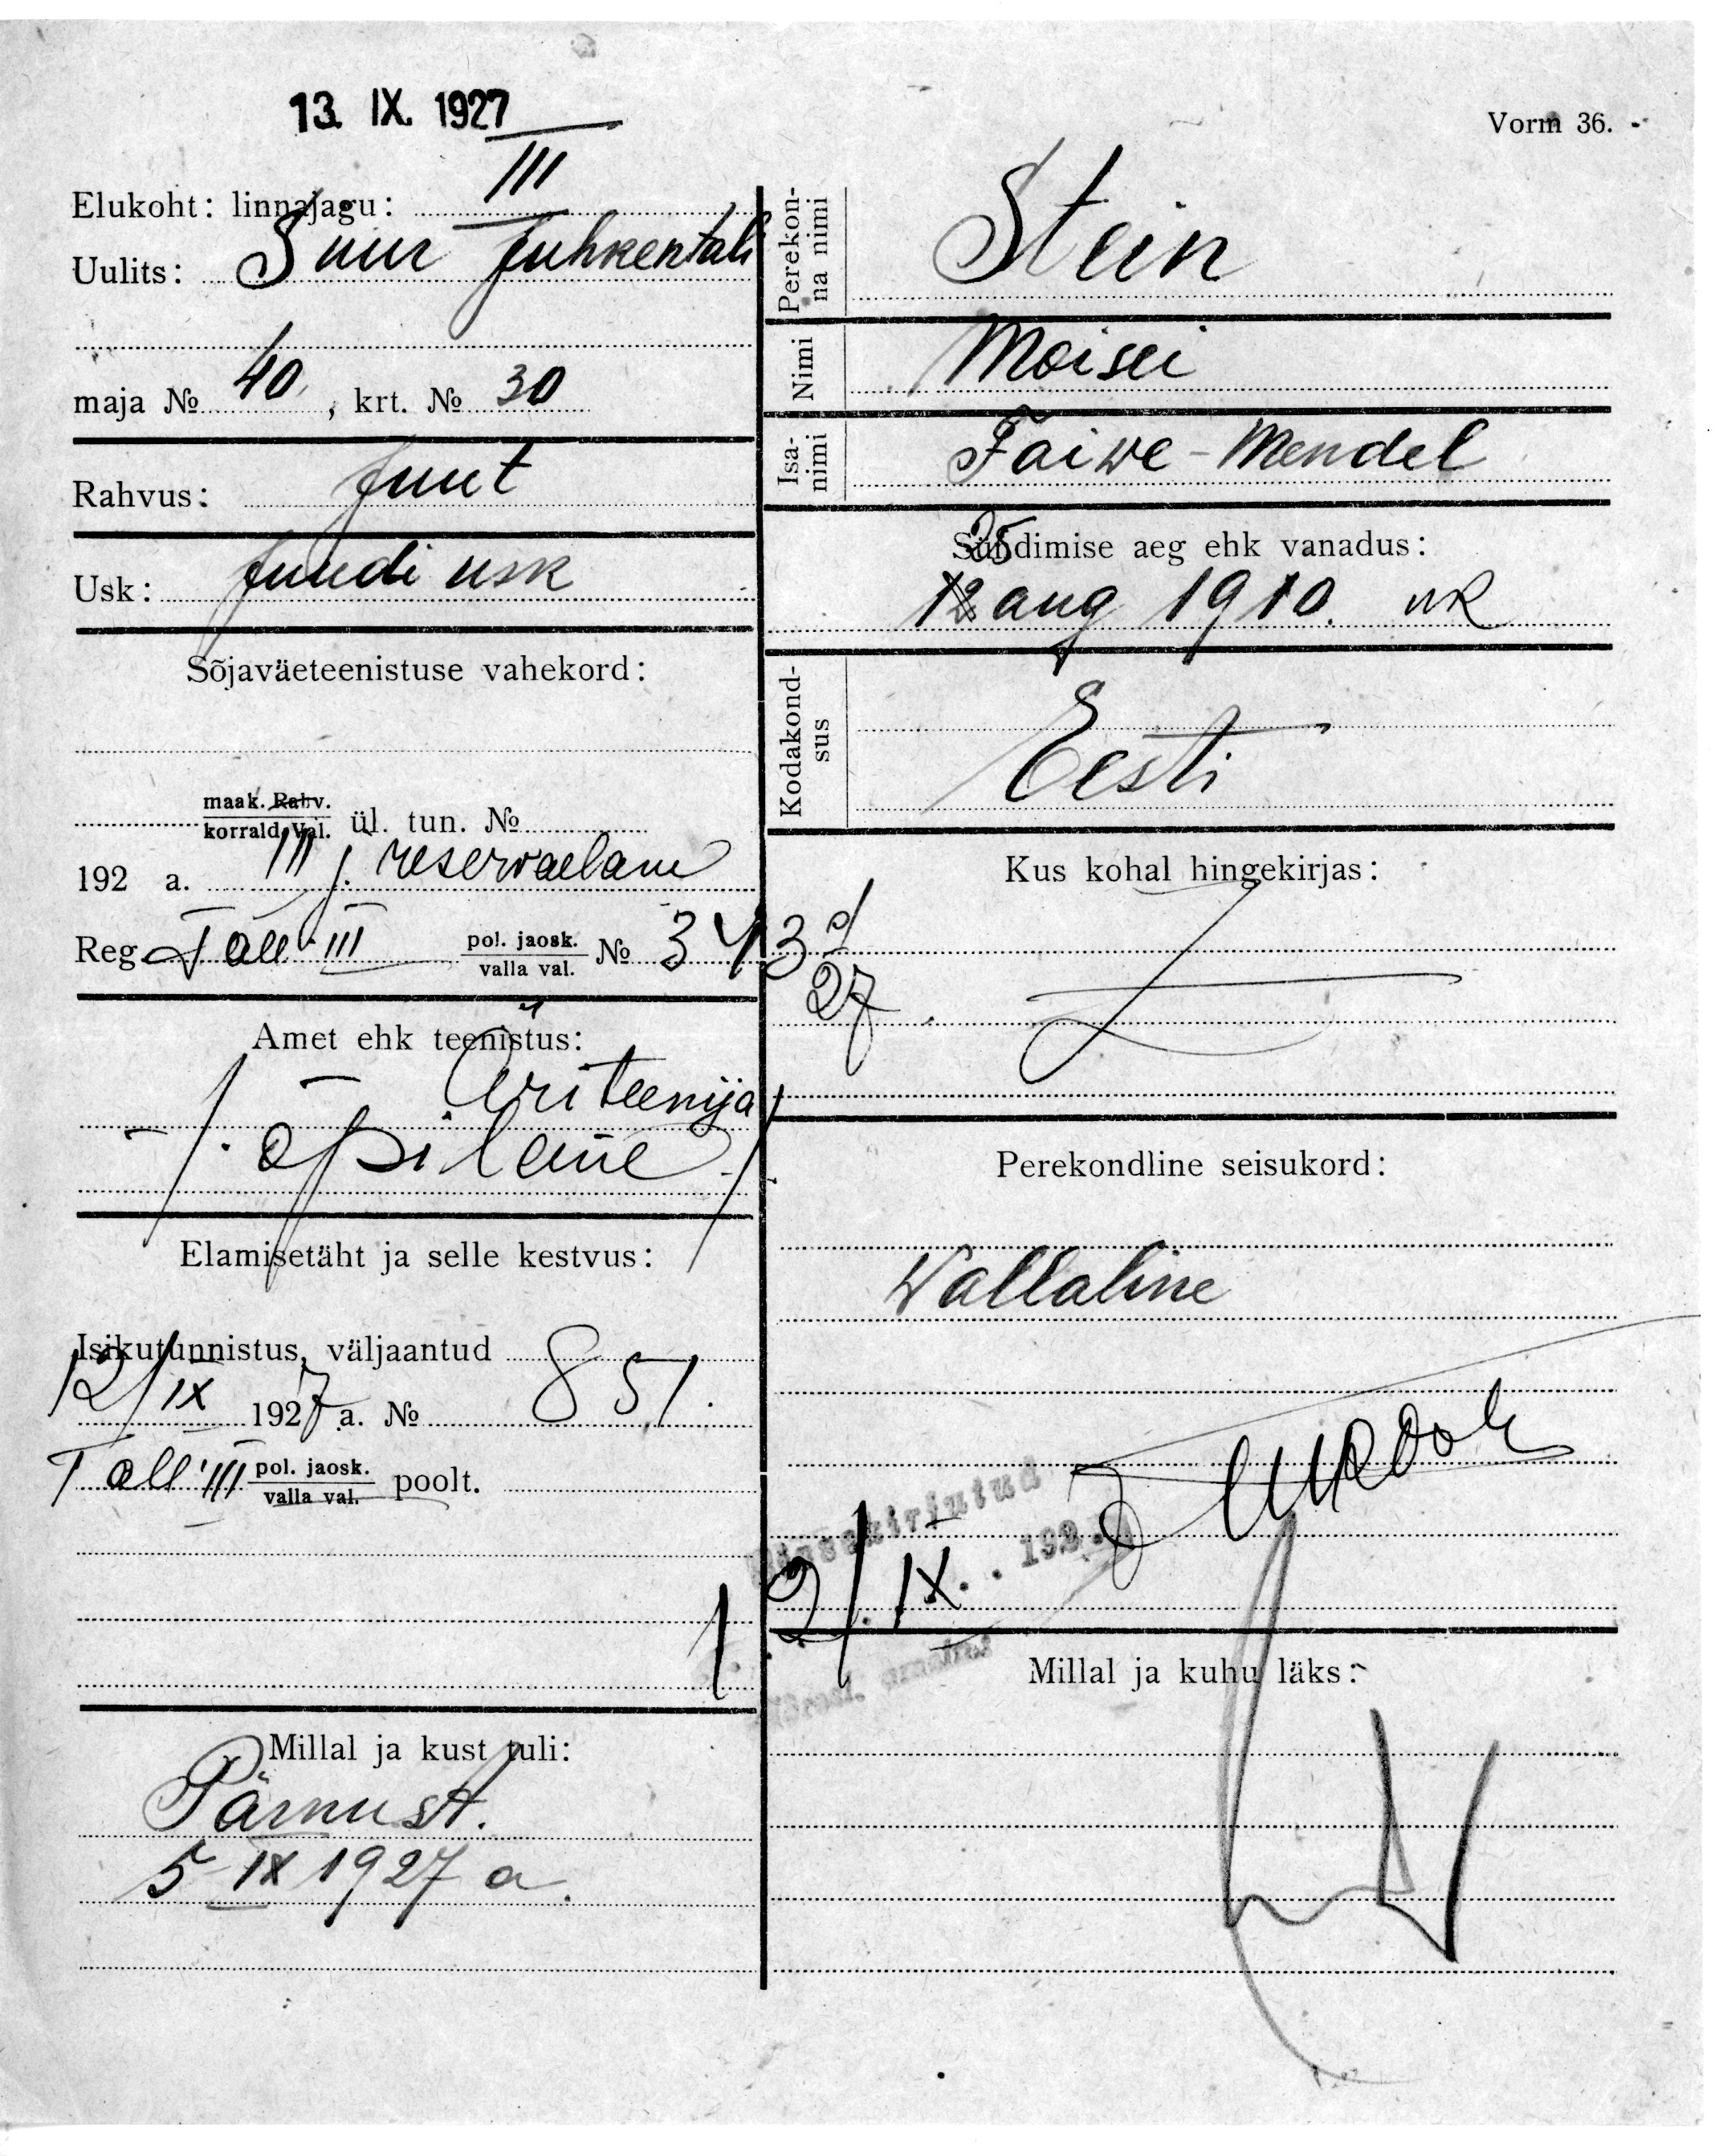 13. IX. 1927
Vorm 36.
Elukoht: linnajagu: III
Uulits: Suur Juhkentali
maja № 40, krt. № 30
Rahvus: Juut
Usk: Juudi usk
Sõjaväeteenistuse vahekord:
maak. Rahv.
korrald. Val. ül. tun. №
192 a. III j. reservaelane
Reg Tall III pol. jaosk. / valla val. № 343
27
Amet ehk teenistus:
Äriteenija
õpilane
Elamisetäht ja selle kestvus:
Isikutunnistus, väljaantud
12/IX 1927 a. № 851.
Tall. III pol. jaosk. / valla val. poolt.
Millal ja kust tuli:
Pärnust.
5-IX 1927 a.
Perekonna nimi Stein
Nimi Moisei
Isanimi Faiwe-Mendel
Sündimise aeg ehk vanadus:
25
12 aug 1910. uk
Kodakondsus Eesti
Kus kohal hingekirjas:
Perekondline seisukord:
Wallaline
12/IX. 192
Millal ja kuhu läks: